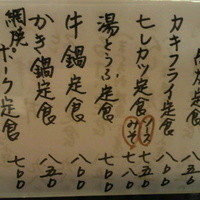 定食
カキフライ定食 八〇〇
ヒレカツ定食
ソース
みそ
湯とうふ定食 七〇〇
牛鍋定食 八〇〇
かき鍋定食 八五〇
網焼ポーク定食 七〇〇